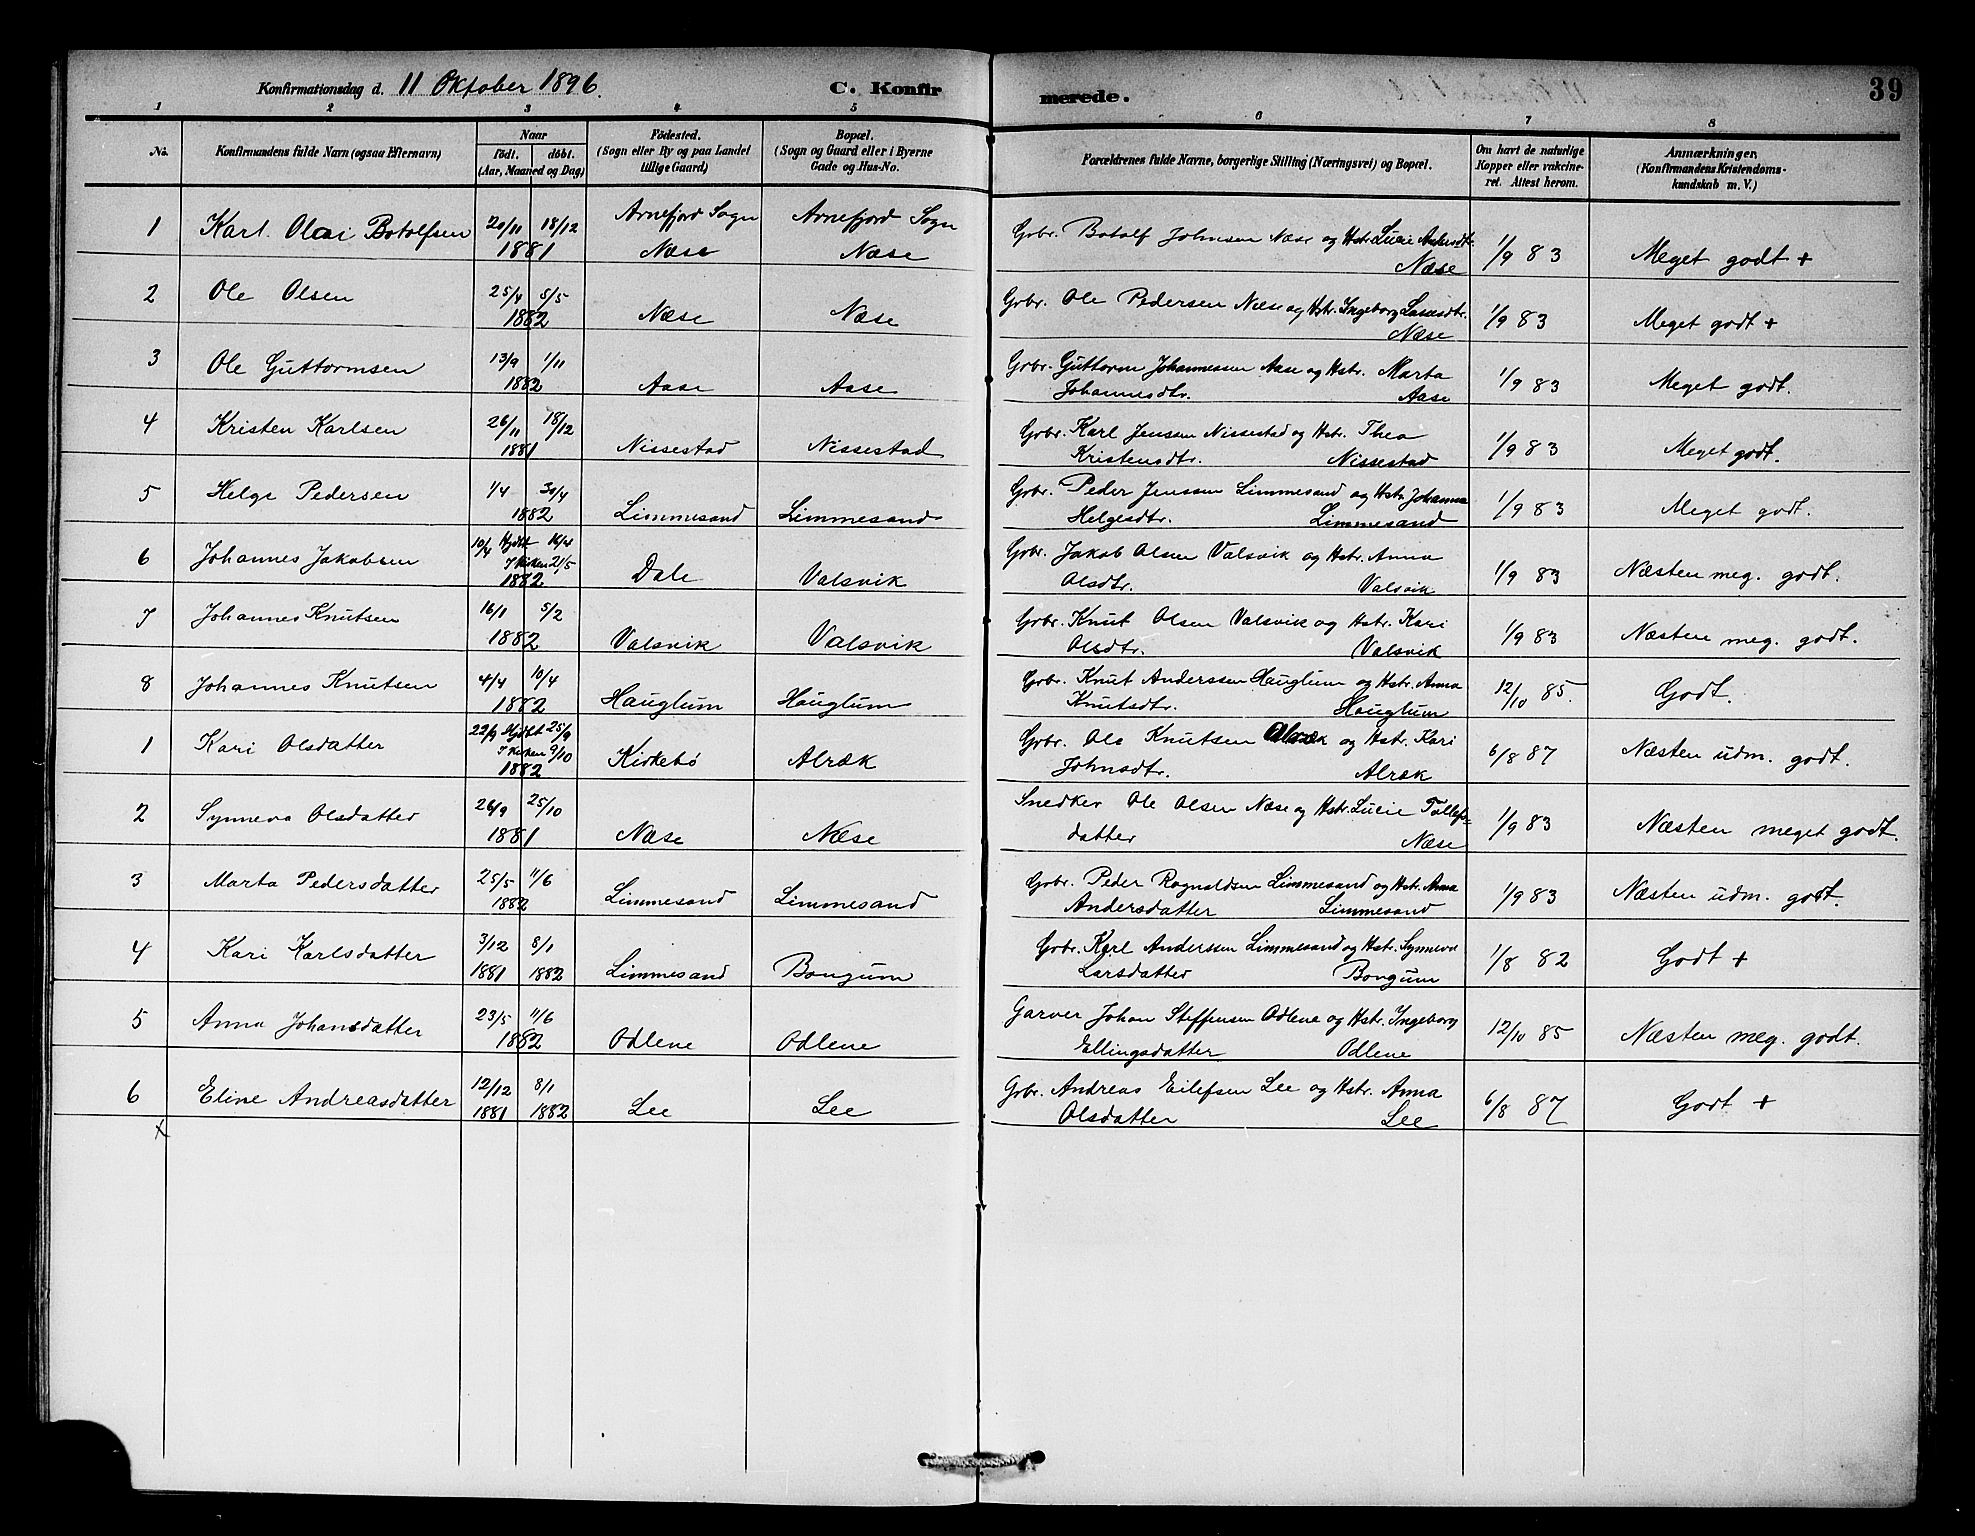 Konfirmationsdag d. 11 Oktober 1896. C. Konfirmerede. 39
1 2 3 4 5 6 7 8
No. Konfirmandens fulde Navn (ogsaa Efternavn) Naar födt. döbt. (Aar, Maaned og Dag) Födested. (Sogn eller By og paa Landet tillige Gaard) Bopæl. (Sogn og Gaard eller i Byerne Gade og Hus-No. Forældrenes fulde Navne, borgerlige Stilling (Næringsvei) og Bopæl. Om havt de naturlige Kopper eller vakcineret. Attest herom. Anmærkninger. (Konfirmandens Kristendomskundskab m. V.)
1 Karl Olai Botolfsen 20/11 18/12 Arnefjord Sogn Arnefjord Sogn Grbr. Botolf Johnsen Næse og Hstr. Lucie
1881 Næse Næse Næse 1/9 83 Meget godt +
2 Ole Olsen 25/4 5/5 Grbr. Ole Pedersen Næse og Hstr. Ingeborg Lasesdtr.
1882 Næse Næse Næse 1/9 83 Meget godt +
3 Ole Guttormsen 13/9 1/11 Grbr. Guttorm Johannessen Aase og Hstr. Marta
1882 Aase Aase Johannesdtr. Aase 1/9 83 Meget godt.
4 Kristen Karlsen 26/11 18/12 Grbr. Karl Jenssen Nissestad og Hstr. Thea
1881 Nissestad Nissestad Kristensdtr. Nissestad 1/9 83 Meget godt.
5 Helge Pedersen 1/4 30/4 Grbr. Peder Jenssen Limmesand og Hstr. Johanna
1882 Limmesand Limmesand Helgesdtr. Limmesand 1/9 83 Meget godt.
6 Johannes Jakobsen 10/4 Hjdbt 16/4 Grbr. Jakob Olsen Valsvik og Hstr. Anna
I Kirken 21/5
1882 Dale Valsvik Olsdtr. Valsvik 1/9 83 Næsten meg. godt.
7 Johannes Knutsen 16/1 5/2 Grbr. Knut Olsen Valsvik og Hstr. Kari
1882 Valsvik Valsvik Olsdtr. Valsvik 1/9 83 Næsten meg. godt.
8 Johannes Knutsen 4/4 10/4 Grbr. Knut Anderssen Hauglum og Hstr. Anna
1882 Hauglum Hauglum Knutsdtr. Hauglum 12/10 85. Godt.
1 Kari Olsdatter 22/9 Hjdbt 25/9 Grbr. Ole Knutsen Alræk og Hstr. Kari
I Kirken 9/10
1882 Kirkebø Alræk Johnsdtr. Alræk 6/8 87 Næsten udm. godt.
2 Synneva Olsdatter 26/9 25/10 Snedker Ole Olsen Næse og Hstr. Lucie Tollefs-
1881 Næse Næse datter Næse 1/9 83 Næsten meget godt.
3 Marta Pedersdatter 25/5 11/6 Grbr. Peder Rognaldsen Limmesand og Hstr. Anna
1882 Limmesand Limmesand Andersdatter Limmesand 1/9 83 Næsten udm. godt.
4 Kari Karlsdatter 3/12 8/1 Grbr. Karl Anderssen Limmesand og Hstr. Synneva
1881 1882 Limmesand Bongum Larsdatter Bongum 1/8 82 Godt +
5 Anna Johansdatter 23/5 11/6 Garver Johan Steffensen Odlene og Hstr. Ingeborg
1882 Odlene Odlene Ellingsdatter Odlene 12/10 85 Næsten meg. godt.
6 Eline Andreasdatter 12/12 8/1 Grbr. Andreas Eilefsen Lee og Hstr. Anna
1881 1882 Lee Lee Olsdatter Lee 6/8 87 Godt +
x